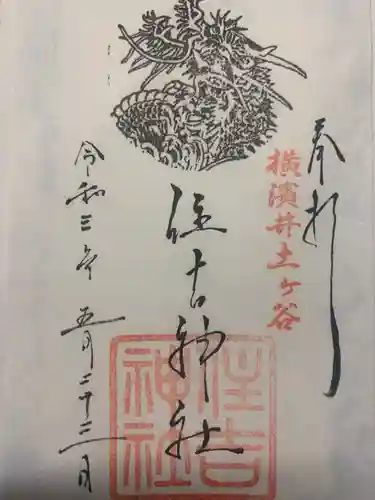 奉拝
横濱井土ヶ谷
住吉神社
住吉
神社
令和三年五月二十三日